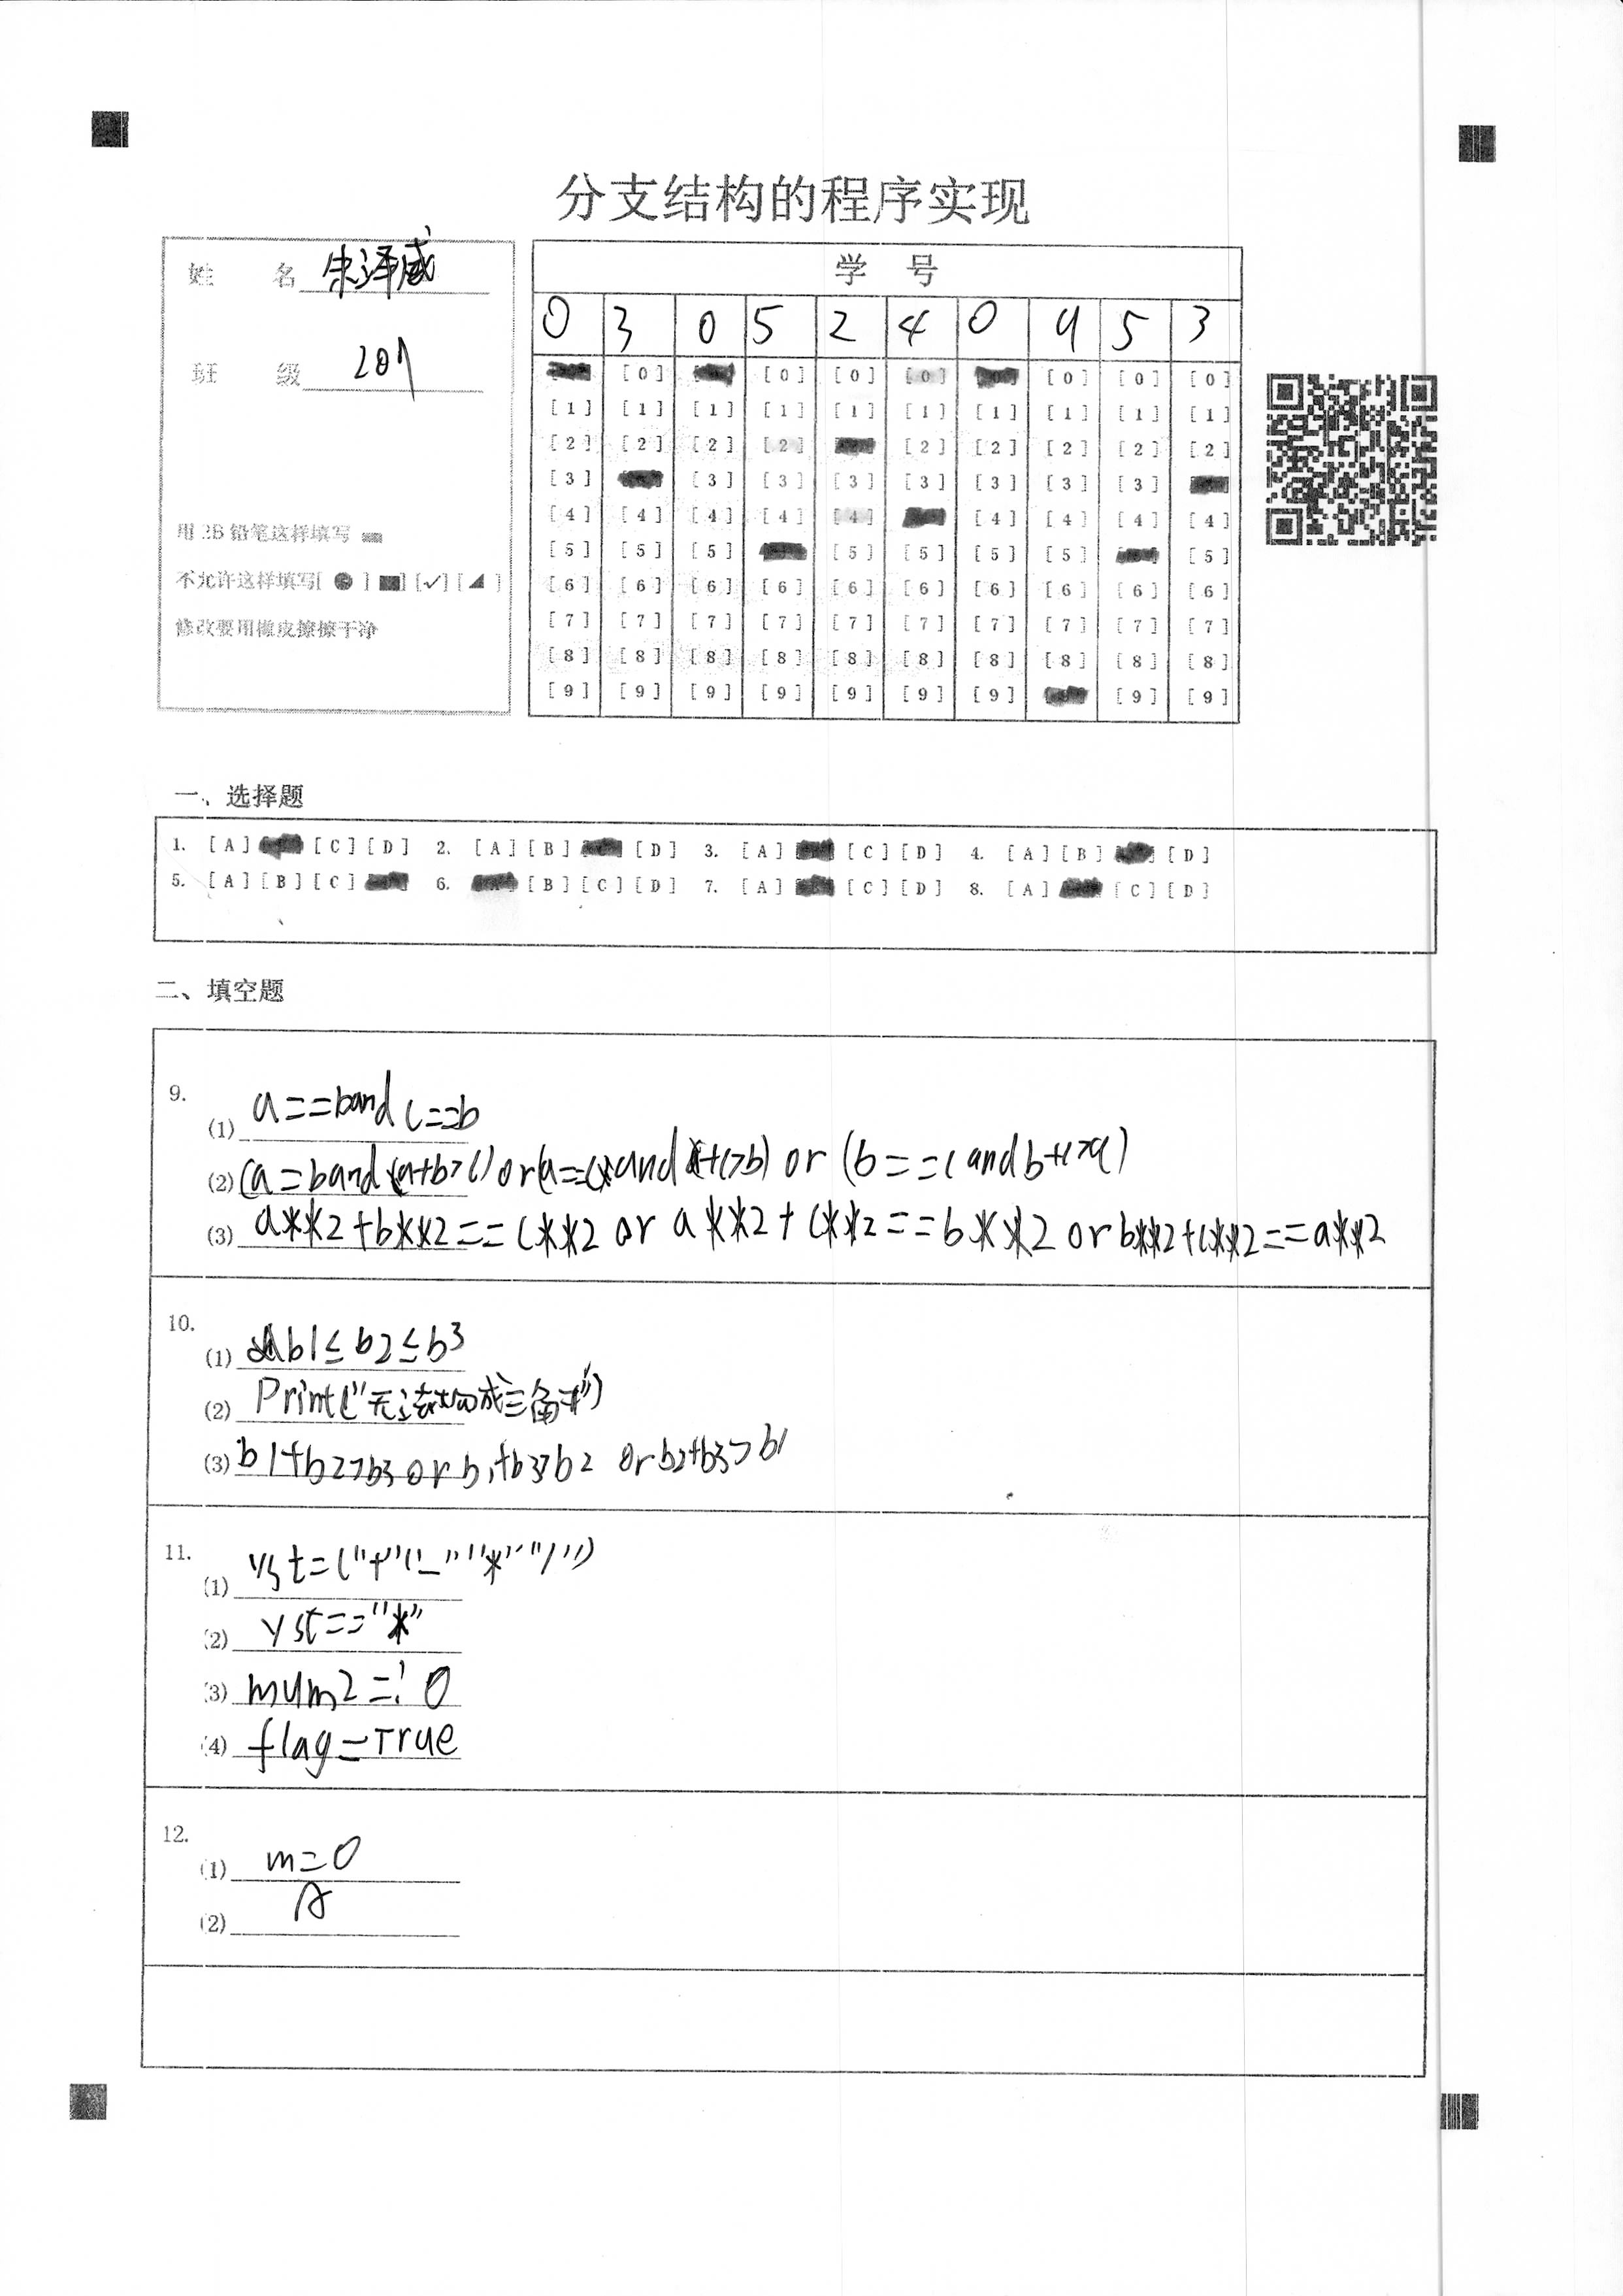 分支结构的程序实现
姓 名 朱泽威
班 级 209
用 2B 铅笔这样填写
不允许这样填写[ ● ] ■] [✓] [◢ ]
修改要用橡皮擦擦干净
学 号
0 3 0 5 2 4 0 9 5 3
[0] [0] [0] [0] [0] [0]
[1] [1] [1] [1] [1] [1] [1] [1] [1] [1]
[2] [2] [2] [2] [2] [2] [2] [2] [2]
[3] [3] [3] [3] [3] [3] [3] [3]
[4] [4] [4] [4] [4] [4] [4] [4] [4]
[5] [5] [5] [5] [5] [5] [5] [5]
[6] [6] [6] [6] [6] [6] [6] [6] [6] [6]
[7] [7] [7] [7] [7] [7] [7] [7] [7] [7]
[8] [8] [8] [8] [8] [8] [8] [8] [8] [8]
[9] [9] [9] [9] [9] [9] [9] [9] [9]
一、选择题
1. [A] [C] [D] 2. [A] [B] [D] 3. [A] [C] [D] 4. [A] [B] [D]
5. [A] [B] [C] 6. [B] [C] [D] 7. [A] [C] [D] 8. [A] [C] [D]
二、填空题
9.
(1) a==b and c==b
(2) (a=b and (a+b>c) or (a==c and a+c>b) or (b==c and b+c>a)
(3) a**2+b**2==c**2 or a**2+c**2==b**2 or b**2+c**2==a**2
10.
(1) b1≤b2≤b3
(2) Print("无法构成三角形")
(3) b1+b2>b3 or b1+b3>b2 or b2+b3>b1
11.
(1) yst=("+" "-" "*" "/")
(2) yst=="*"
(3) num2=!0
(4) flag=True
12.
(1) m=0
(2) A